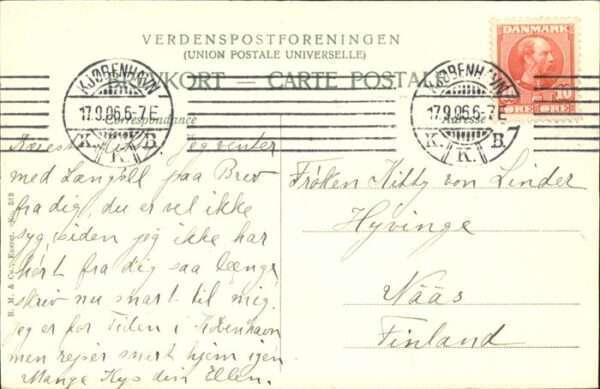 VERDENSPOSTFORENINGEN
(UNION POSTALE UNIVERSELLE)
BREVKORT — CARTE POSTALE
DANMARK
10
ØRE ØRE
KJØBENHAVN
17.9.06.5-7E
K. K. B.
KJØBENHAVN
17.9.06.5-7E
K. K. B.
7
Correspondance
Adresse
Jeg venter
med Længsel paa Brev
fra dig, du er vel ikke
syg, siden jeg ikke har
hørt fra dig saa længe
skriv nu snart til mig.
Jeg er for Tiden i København
men rejser snart hjem igen
Mange Kys din Ellen.
Frøken Kitty von Linder
Hyvinge
Nääs
Finland